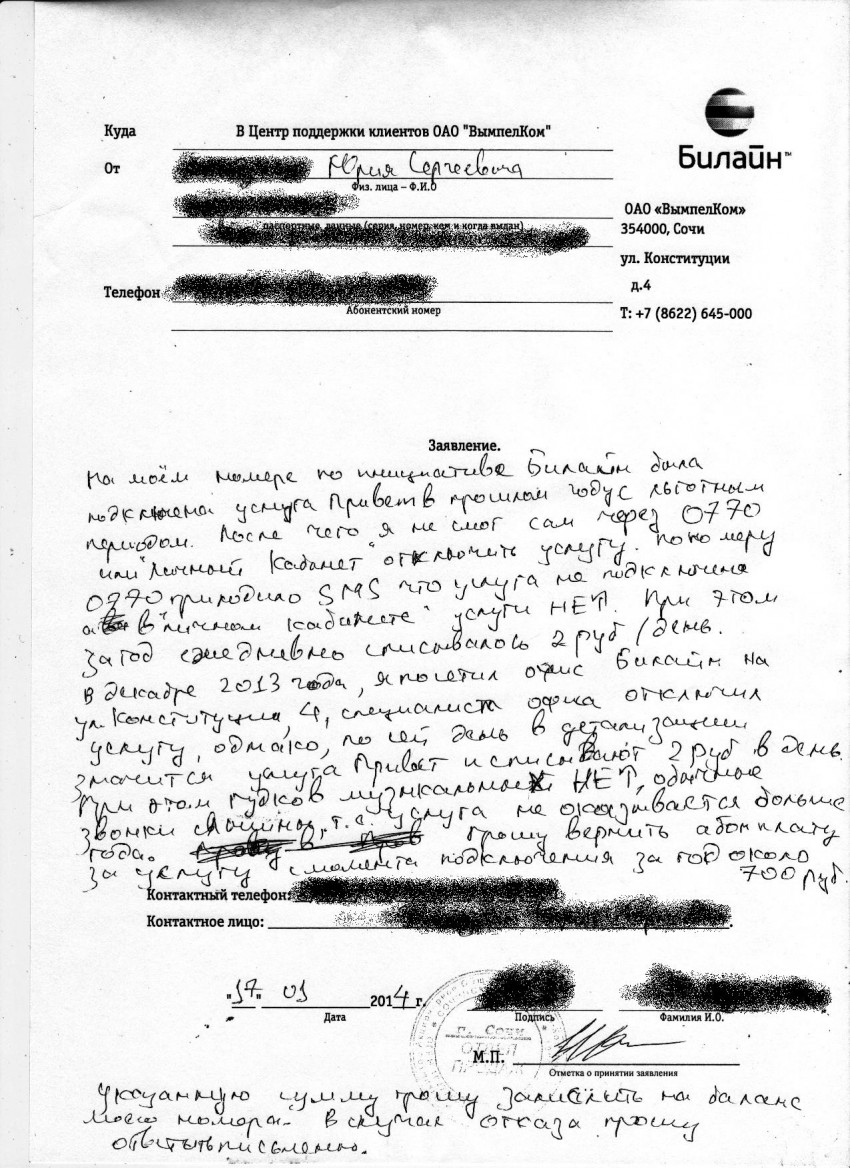 Билайн™
Куда В Центр поддержки клиентов ОАО "ВымпелКом"
От Юрия Сергеевича
Физ. лица – Ф.И.О
ОАО «ВымпелКом»
паспортные данные (серия, номер, кем и когда выдан)
354000, Сочи
ул. Конституции
д.4
Телефон
Абонентский номер
Т: +7 (8622) 645-000
Заявление.
На моём номере по инициативе Билайн была
подключена услуга Привет в прошлом году с льготным
периодом. После чего я не смог сам через 0770
или "Личный кабинет" отключить услугу. По номеру
0770 приходило SMS что услуга не подключена
а в "личном кабинете" услуги НЕТ. При этом
за год ежедневно списывалось 2 руб/день.
В декабре 2013 года, я посетил офис Билайн на
ул. Конституции, 4, специалист офиса отключил
услугу, однако, по сей день в детализации
значится услуга Привет и списывают 2 руб в день.
При этом гудков музыкальных НЕТ, обычные
звонки слышны, т.е. услуга не оказывается больше
года. прошу вернуть абонплату
за услугу с момента подключения за год около
700 руб.
Контактный телефон:
Контактное лицо:
"17" 01 2014 г.
Дата Подпись Фамилия И.О.
г. Сочи
ОТДЕЛ
ПРОДАЖ
М.П.
Отметка о принятии заявления
Указанную сумму прошу зачислить на баланс
моего номера. В случае отказа прошу
ответить письменно.